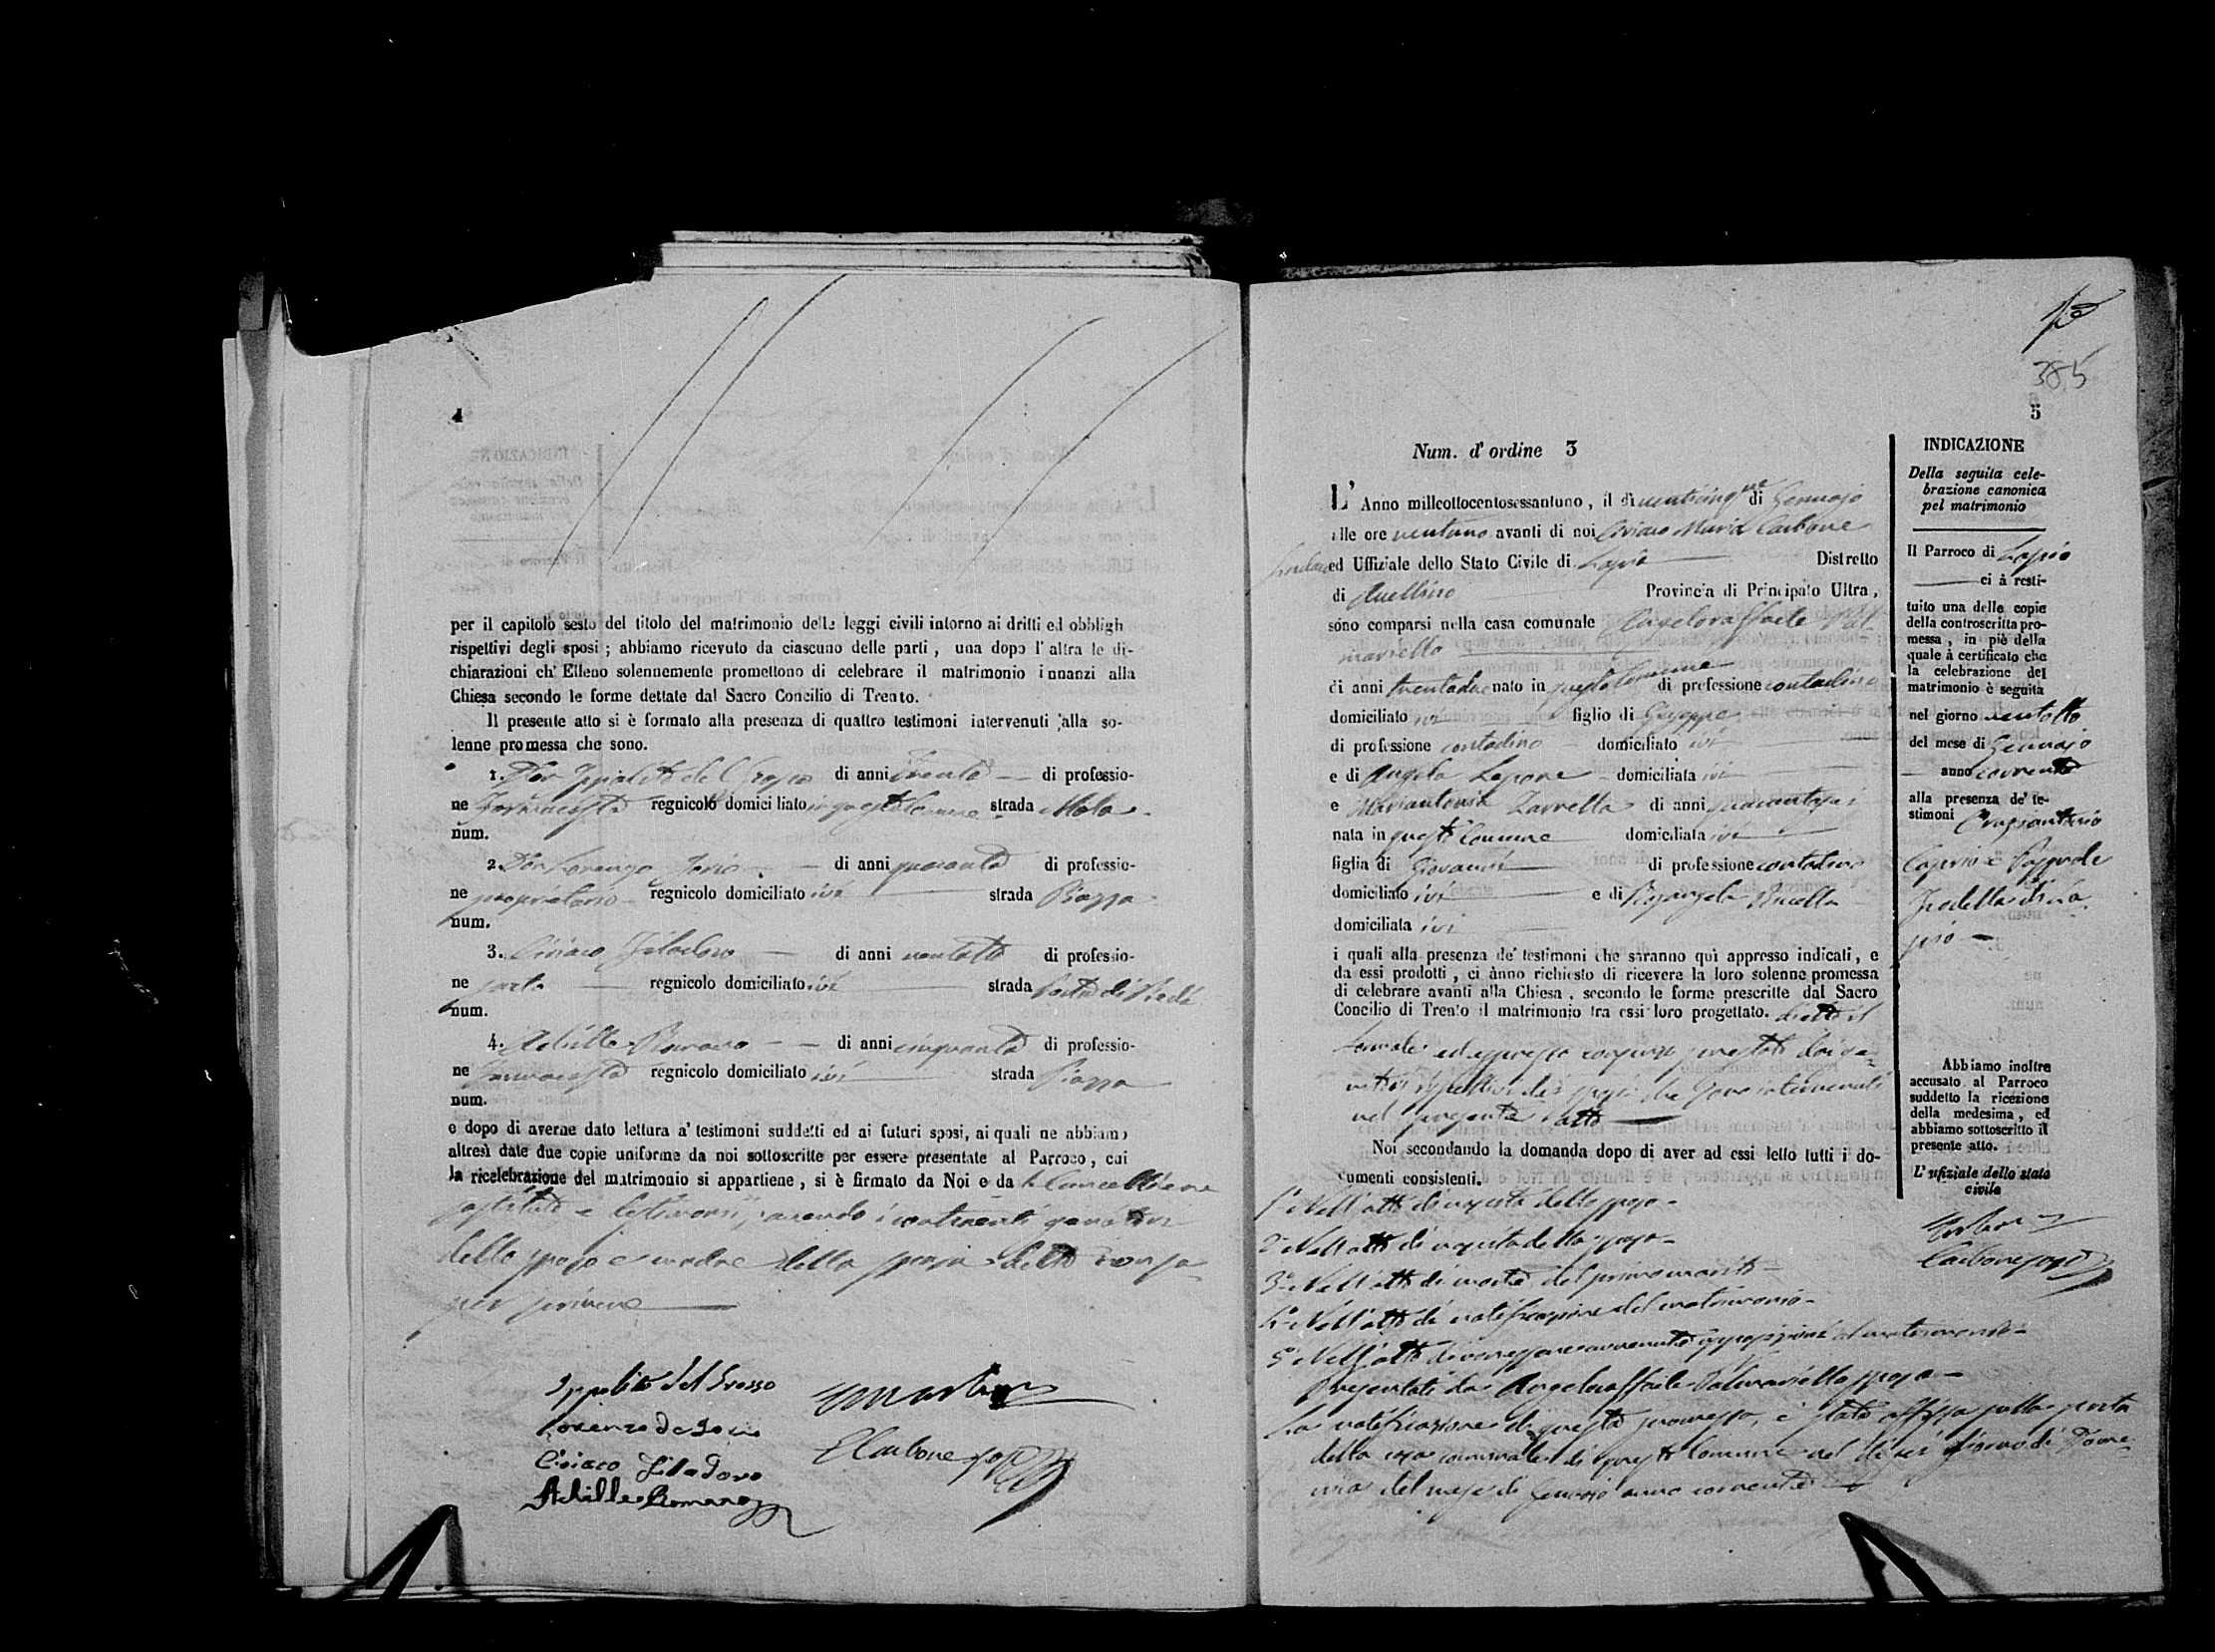 4
per il capitolo sesto del titolo del matrimonio delle leggi civili intorno ai dritti ed obbligh
rispettivi degli sposi ; abbiamo ricevuto da ciascuno delle parti , una dopo l' altra le di-
chiarazioni ch' Elleno solennemente promettono di celebrare il matrimonio innanzi alla
Chiesa secondo le forme dettate dal Sacro Concilio di Trento.
Il presente atto si è formato alla presenza di quattro testimoni intervenuti alla so-
lenne promessa che sono.
1. Don Ippolito del Grosso di anni trenta di professio-
ne Farmacista regnicolo domiciliato in questo Comune strada Mola
num.
2. Don Lorenzo de Iorio di anni quaranta di professio-
ne proprietario regnicolo domiciliato ivi strada Piazza
num.
3. Ciriaco Filadoro di anni ventotto di professio-
ne sarto regnicolo domiciliato ivi strada
num.
4. Achille Romano di anni cinquanta di professio-
ne Farmacista regnicolo domiciliato ivi strada Piazza
num.
e dopo di averne dato lettura a' testimoni suddetti ed ai futuri sposi, ai quali ne abbiamo
altresì date due copie uniforme da noi sottoscritte per essere presentate al Parroco, cui
la ricelebrazione del matrimonio si appartiene , si è firmato da Noi e da l Cancelliere
sostituto e testimoni, avendo i contraenti genitori
dello sposo e madre della sposa detto non sa-
per scrivere
Ippolito del Grosso
Lorenzo de Iorio
Ciriaco Filadoro
Achille Romano
Carbone
385
5
Num. d' ordine 3
L' Anno millottocentosessantuno , il dì venticinque di Gennajo
alle ore ventuno avanti di noi Ciriaco Maria Carbone
Sindaco ed Uffiziale dello Stato Civile di Lapio Distretto
di Avellino Provincia di Principato Ultra ,
sono comparsi nella casa comunale Angeloraffaele Pal-
mariello
di anni trentadue nato in questo Comune di professione contadino
domiciliato ivi figlio di Giuseppe
di professione contadino domiciliato ivi
e di Angela Lepore domiciliata ivi
e Mariantonia Zarrella di anni quarantasei
nata in questo Comune domiciliata ivi
figlia di Giovanni di professione contadino
domiciliato ivi e di Rosangela
domiciliata ivi
i quali alla presenza de' testimoni che saranno quì appresso indicati, e
da essi prodotti , ci ànno richiesto di ricevere la loro solenne promessa
di celebrare avanti alla Chiesa , secondo le forme prescritte dal Sacro
Concilio di Trento il matrimonio tra essi loro progettato. dietro il
formale ed espresso consenso prestato dai ge-
nitori rispettivi dei sposi che sono intervenuti
nel presente atto
Noi secondando la domanda dopo di aver ad essi letto tutti i do-
cumenti consistenti.
1° Nell'atto di nascita dello sposo
2° Nell'atto di nascita della sposa
3° Nell'atto di morte del primo marito
4° Nell'atto di notificazione del matrimonio
5° Nell'atto di non essere avvenuta opposizione al matrimonio
Presentati da Angeloraffaele Palmariello sposo
La notificazione di questa promessa, è stata affissa sulla porta
della casa comunale di questo Comune nel dì sei giorno di Dome-
nica del mese di Gennajo anno corrente
INDICAZIONE
Della seguita cele-
brazione canonica
pel matrimonio
Il Parroco di Lapio
ci à resti-
tuito una delle copie
della controscritta pro-
messa , in piè della
quale à certificato che
la celebrazione del
matrimonio è seguita
nel giorno ventotto
del mese di Gennajo
anno corrente
alla presenza de' te-
stimoni
Caprio e Pasquale
di La-
pio
Abbiamo inoltre
accusato al Parroco
suddetto la ricezione
della medesima , ed
abbiamo sottoscritto il
presente atto.
L' ufiziale dello stato
civile
Carbone